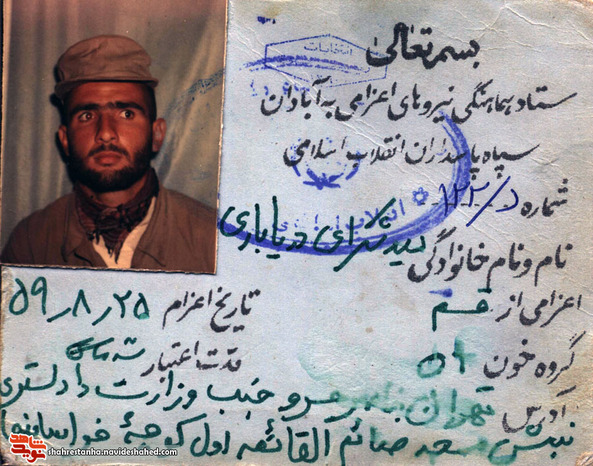 بسمه تعالی
ستاد هماهنگی نیروهای اعزامی به آبادان
سپاه پاسداران انقلاب اسلامی
شماره د/۱۲۲
نام و نام خانوادگی سید شکرای دریاباری
اعزامی از قم
تاریخ اعزام ۵۹٫۸٫۲۵
گروه خون
مدت اعتبار سه ماه
آدرس تهران ناصر خسرو جنب وزارت دادگستری
نبش مسجد صائم القائمه اول کوچهٔ خراسانیها
انتخابات
انقلاب
نوید شاهد
shahrestanha.navideshahed.com